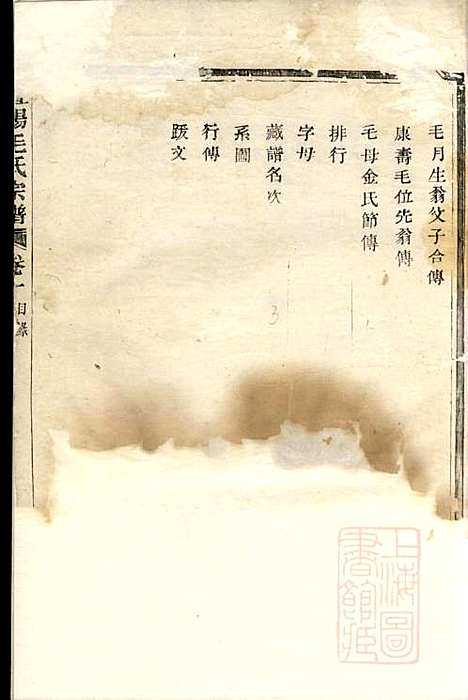 毛月生翁父子合傳
康壽毛位先翁傳
毛母金氏節傳
排行
字母
藏譜名次
系圖
行傳
跋文
陽毛氏宗譜
卷一
目錄
3
上海圖書館藏